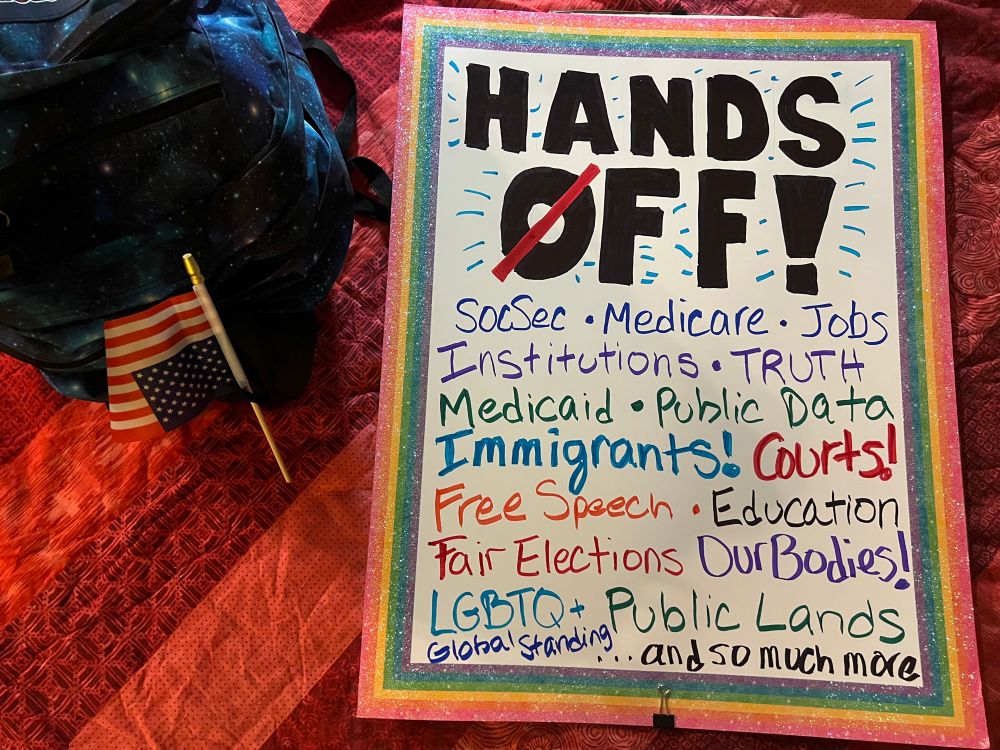 HANDS
OFF!
SocSec • Medicare • Jobs
Institutions • TRUTH
Medicaid • Public Data
Immigrants! Courts!
Free Speech • Education
Fair Elections Our Bodies!
LGBTQ+ Public Lands
Global Standing ...and so much more